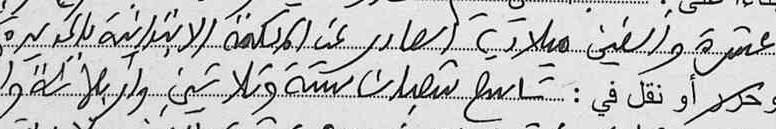 عشرة وألفين ميلادية الصادر عن المحكمة الابتدائية بالجديدة
وحرر أو نقل في : تاسع شعبان ستة وثلاثين وأربعمائة وا